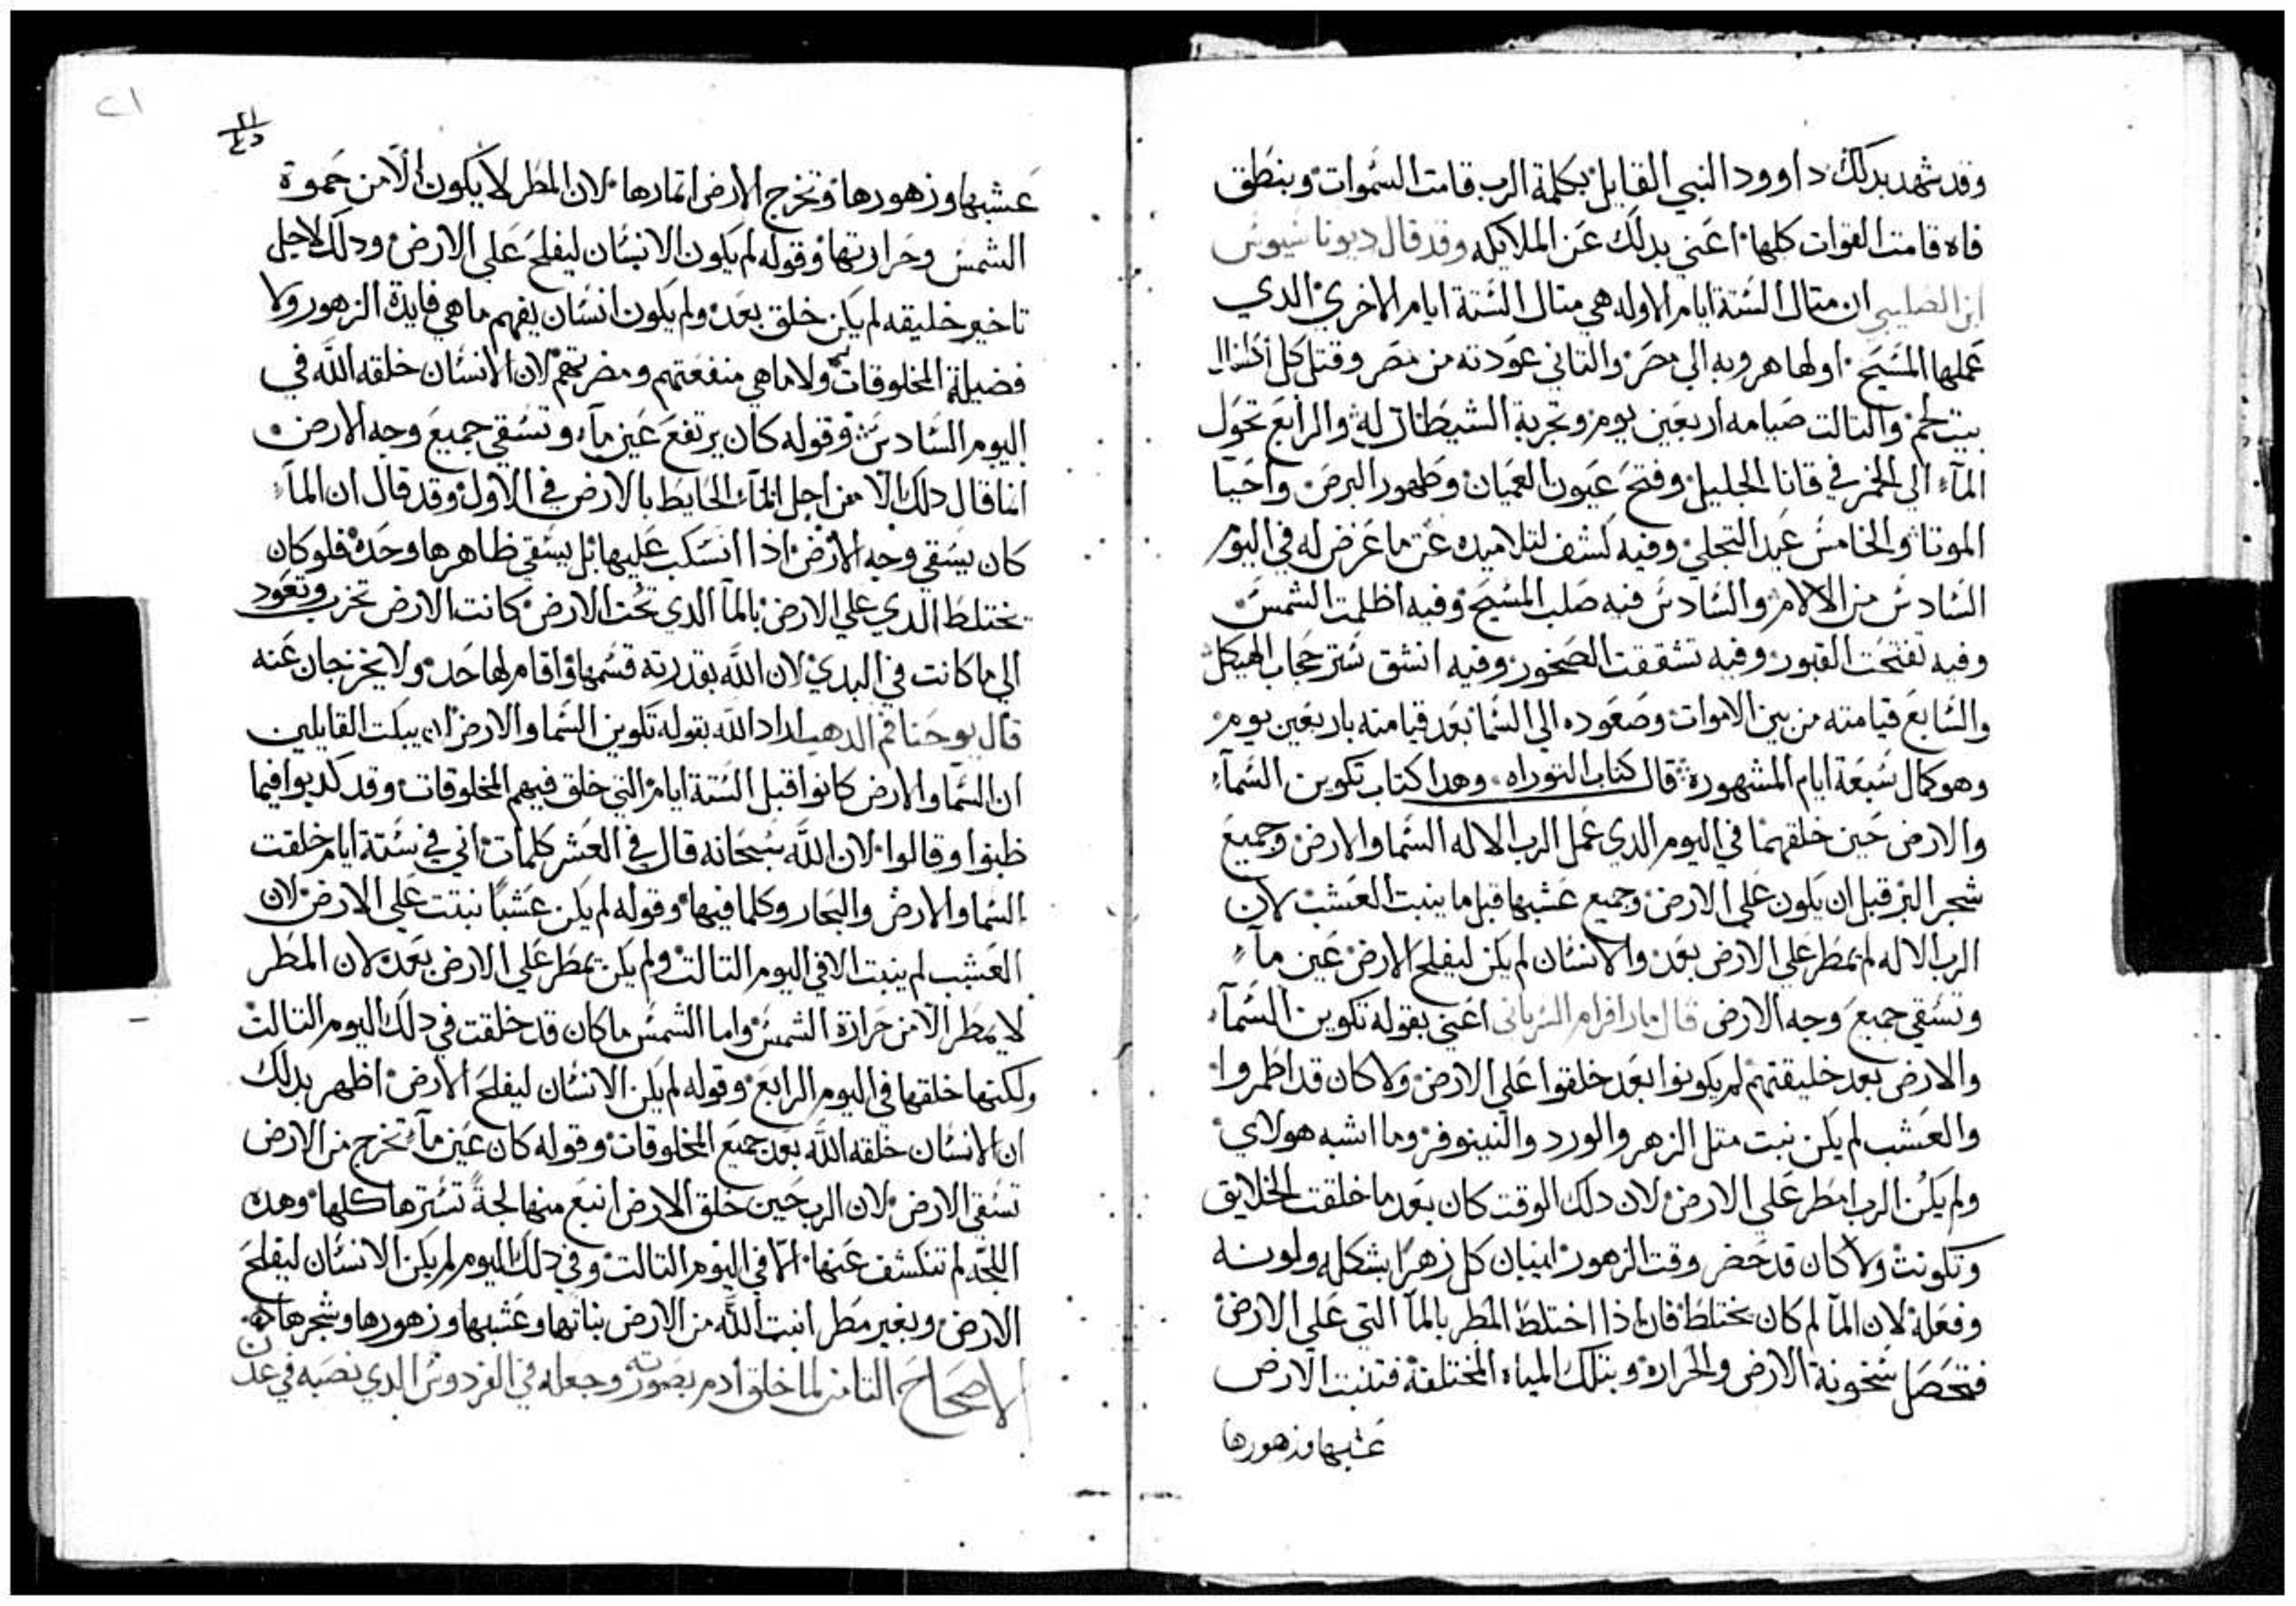 وقد شهد بدلك داوود النبي القايل بكلمة الرب قامت السموات وبنطق
فاه قامت القوات كلها اعني بدلك عن الملايكه وقد قال ديوناسيوس
ابن الصليبي ان متال الستة ايام الاوله هي متال الستة ايام الاخري الدي
عملها المسيح اولها هروبه الي مصر والتاني عودته من مصر وقتل كل اطفال
بيت لحم والتالت صيامه اربعين يوم وتجربة الشيطان له والرابع تحول
المآء الي الخمر في قانا الجليل وفتح عيون العميان وطهور البرص واحيا
الموتا والخامس عيد التجلي وفيه كشف لتلاميده عن ما عرض له في اليوم
السادس من الالام والسادس فيه صلب المسيح وفيه اظلمت الشمس
وفيه تفتحت القبور وفيه تشققت الصخور وفيه انشق ستر حجاب الهيكل
والسابع قيامته من بين الاموات وصعوده الي السما بعد قيامته باربعين يوم
وهو كمال سبعة ايام المشهورة قال كتاب التوراه وهدا كتاب تكوين السمآء
والارض حين خلقهما في اليوم الدي عمل الرب الاله السما والارض وجميع
شجر البر قبل ان يكون علي الارض وجميع عشبها قبل ما ينبت العشب لان
الرب الاله لم يمطر علي الارض بعد والانسان لم يكن ليفلح الارض عين مآء
وتسقي جميع وجه الارض قال مار افرام السرياني اعني بقوله تكوين السمآء
والارض بعد خليقتهم لم يكونوا بعد خلقوا علي الارض ولا كان قد اظمروا
والعشب لم يكن نبت متل الزهر والورد والنينوفر وما اشبه هولاي
ولم يكن الرب امطر علي الارض لان دلك الوقت كان بعد ما خلقت الخلايق
وتكونت ولا كان قد حضر وقت الزهور لبيان كل زهرا بشكله ولونه
وفعله لان المآ لم كان يختلط فان اذا اختلط المطر بالمآ التي علي الارض
فتحصل سخونة الارض والحراره وبتلك المياه المختلفة فتنبت الارض
عشبها وزهورها
٢١
٢١
عشبها وزهورها وتخرج الارض اتمارها لان المطر لا يكون الا من حموة
الشمس وحرارتها وقوله لم يكون الانسان ليفلح علي الارض ودلك لاجل
تاخير خليقه لم يكن خلق بعد ولم يكون انسان يفهم ما هي فايدة الزهور ولا
فضيلة المخلوقات ولا ما هي منفعتهم ومضرتهم لان الانسان خلقه الله في
اليوم السادس وقوله كان يرتفع عين مآء وتسقي جميع وجه الارض
انما قال دلك الا من اجل المآء الحايط بالارض في الاول وقد قال ان المآء
كان يسقي وجه الارض اذا انسكب عليها بل يسقي ظاهرها وحده فلو كان
يختلط الدي علي الارض بالمآ الدي تحت الارض كانت الارض تخرب وتعود
الي ما كانت في البدي لان الله بقدرته قسمها واقام لها حد ولا يخرجان عنه
قال يوحنا فم الدهب اراد الله بقوله تكوين السما والارض ان يبكت القايلين
ان السما والارض كانوا قبل الستة ايام التي خلق فيهم المخلوقات وقد كدبوا فيما
ظنوا وقالوا لان الله سبحانه قال في العشر كلمات اني في ستة ايام خلقت
السما والارض والبحار وكلما فيها وقوله لم يكن عشبًا نبتت علي الارض لان
العشب لم ينبت الا في اليوم التالت ولم يكن يمطر علي الارض بعد لان المطر
لا يمطر الا من حرارة الشمس واما الشمس ما كان قد خلقت في دلك اليوم التالت
ولكنها خلقها في اليوم الرابع وقوله لم يكن الانسان ليفلح الارض اظهر بدلك
ان الانسان خلقه الله بعد جميع المخلوقات وقوله كان عين مآء تخرج من الارض
تسقي الارض لان الرب حين خلق الارض انبع منها لجةً تسترها كلها وهده
اللجه لم تنكشف عنها الا في اليوم التالت وفي دلك اليوم لم يكن الانسان ليفلح
الارض وبغير مطر انبت الله من الارض نباتها وعشبها وزهورها وشجرها
الاصحاح التامن لما خلق ادم بصورته وجعله في الفردوس الدي نصبه في عدن